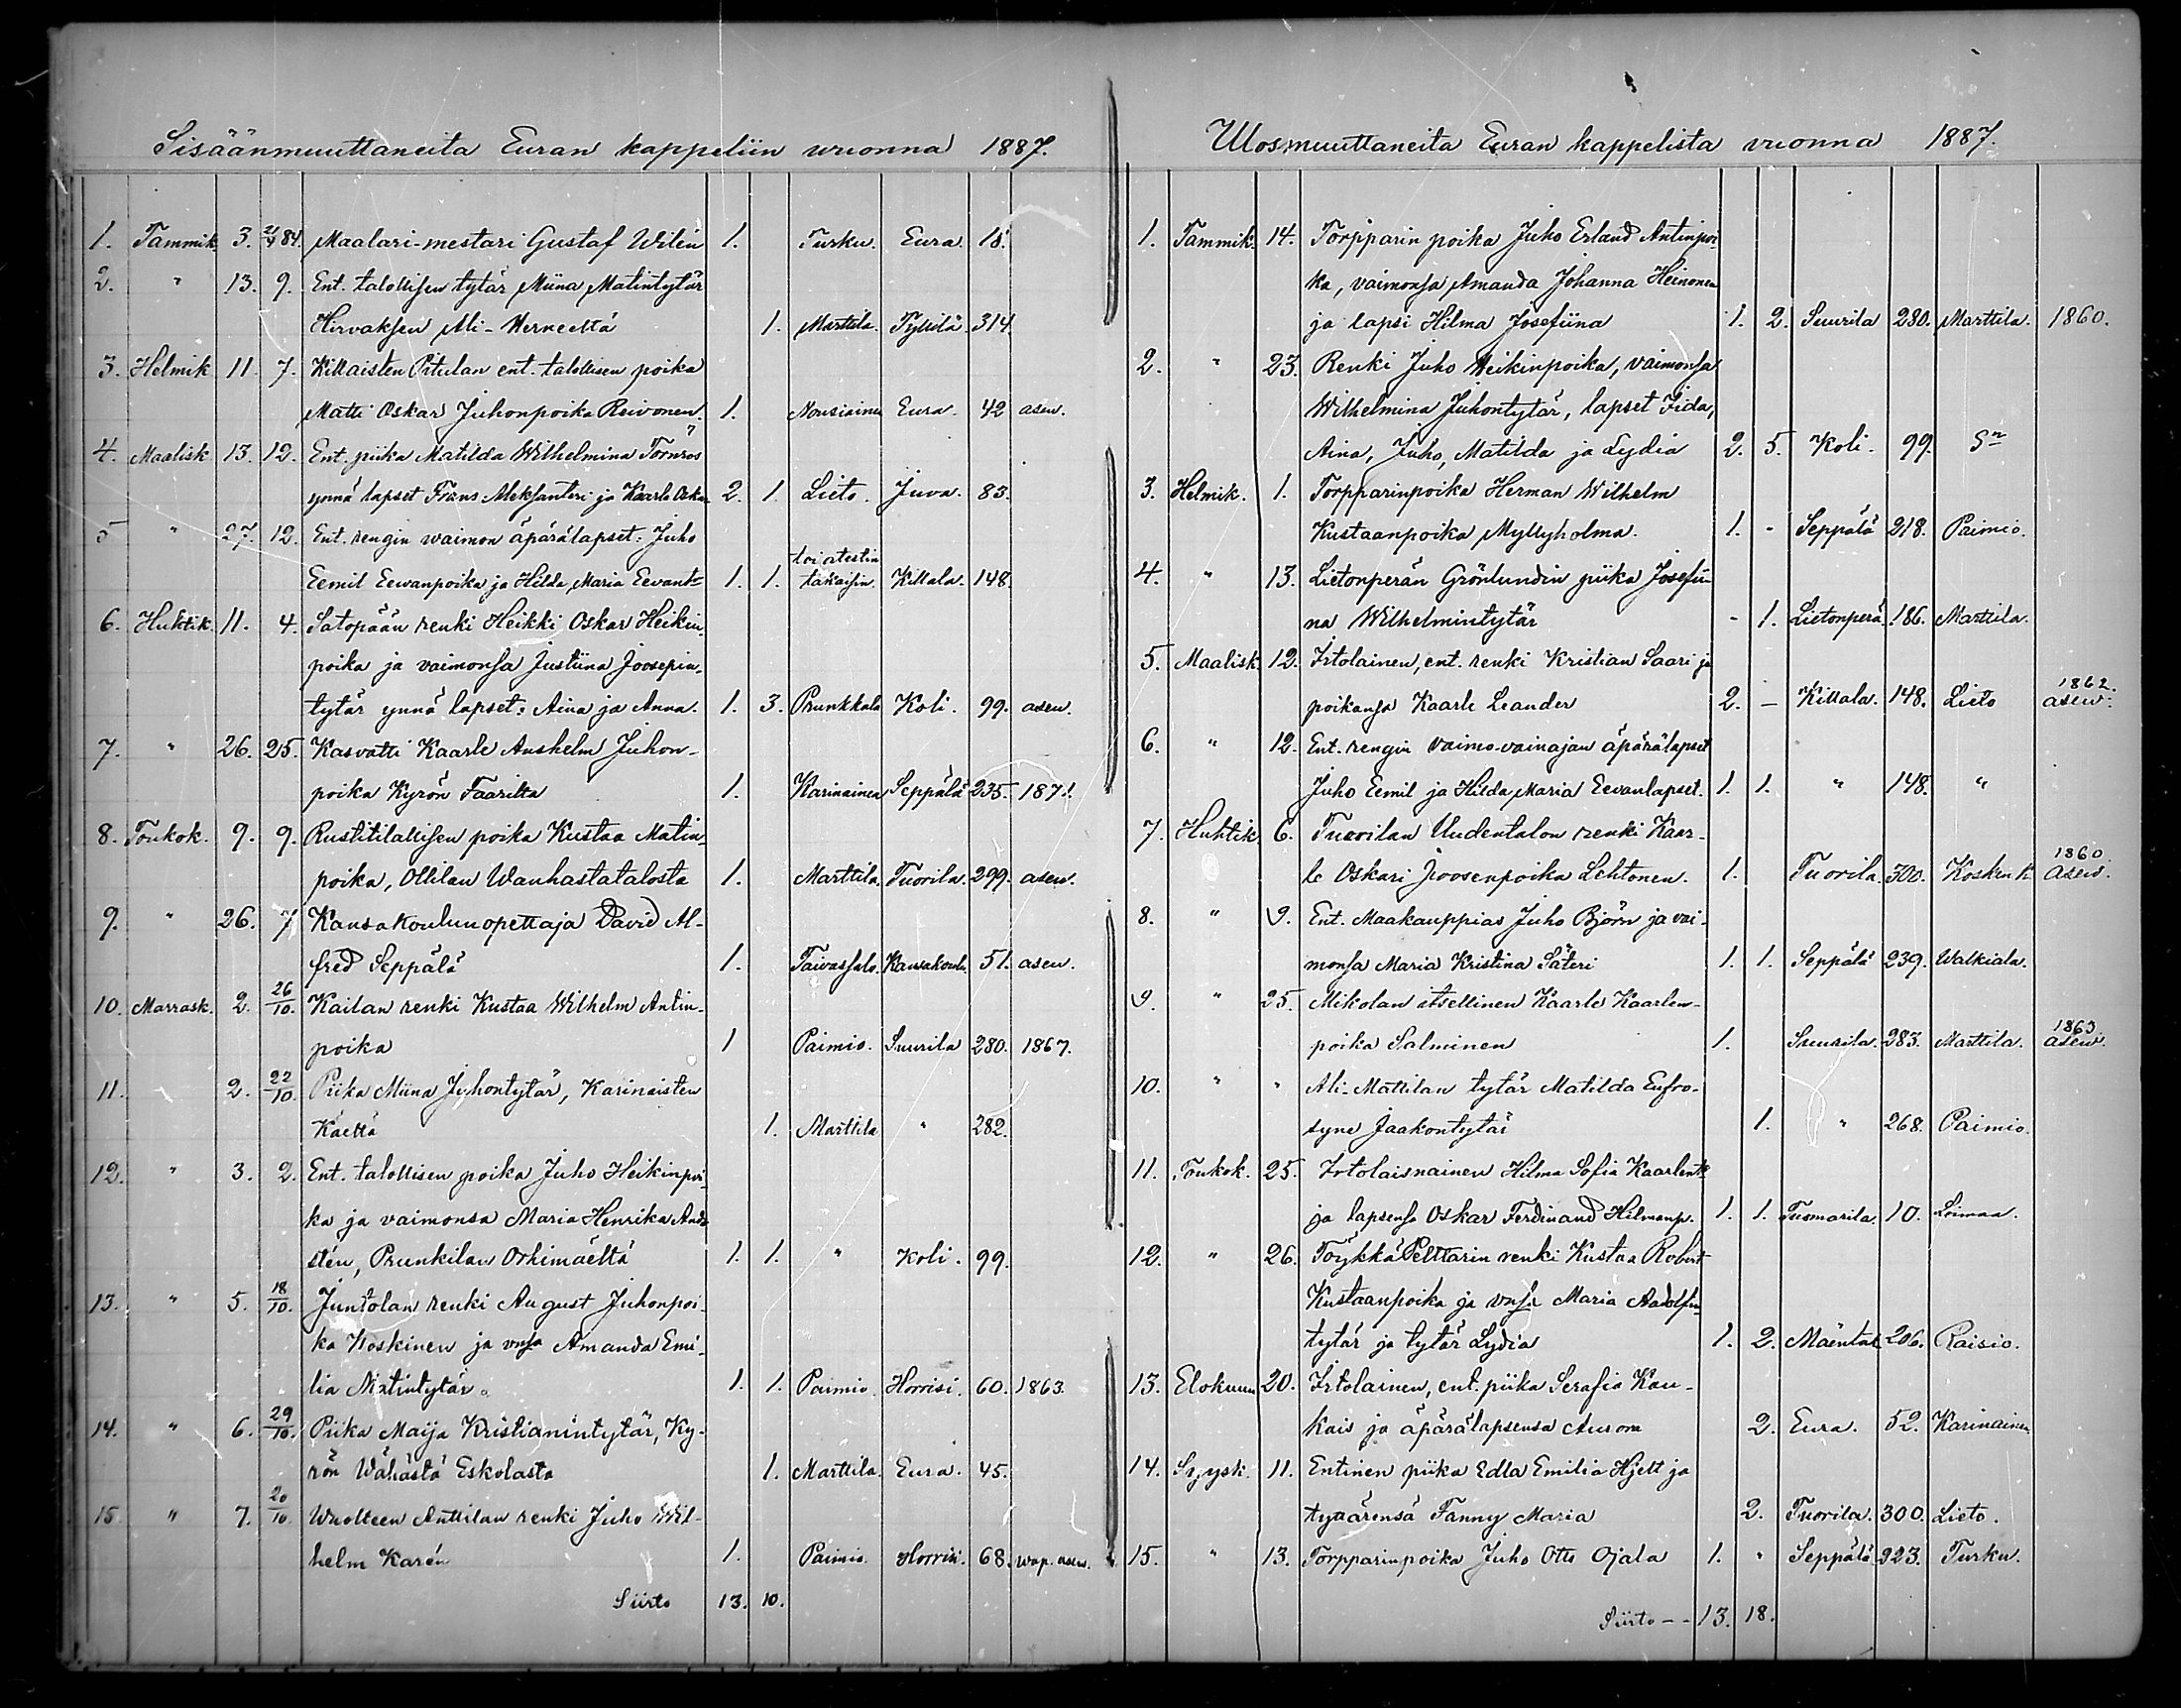 Sisäänmuuttaneita Euran kappeliin vuonna 1887.
1. Tammik. 3. 21/4 84. Maalari-mestari Gustaf Wilén 1. Turku. Eura. 18.
2. " 13. 9. Ent. talollisen tytär Miina Matintytär
Hirvaksen Ali-Herneeltä 1. Marttila. Tyllilä 314.
3. Helmik 11. 7. Killaisten Pitulan ent. talollisen poika
Matti Oskar Juhonpoika Reivonen. 1. Nousiainen Eura. 42 asev.
4. Maalisk 13. 12. Ent. piika Matilda Wilhelmina Törnros
ynnä lapset Frans Aleksanteri ja Kaarle Oskar 2. 1. Lieto. Juva. 83.
5 " 27. 12. Ent. rengin waimon äpärälapset: Juho
toi atestin
Eemil Eewanpoika ja Hilda Maria Eevant. 1. 1. takaisin. Killala. 148.
6. Huhtik. 11. 4. Satopään renki Heikki Oskar Heikin-
poika ja vaimonsa Justiina Joosepin-
tytär ynnä lapset: Aina ja Anna. 1. 3. Prunkkala Koli. 99. asev.
7. " 26. 25. Kasvatti Kaarle Anshelm Juhon-
poika Kyrön Faarilta 1. Karinainen Seppälä 235. 1871.
8. Toukok. 9. 9. Rustitilallisen poika Kustaa Matin-
poika, Ollilan Wanhastatalosta 1. Marttila. Tuorila. 299. asev.
9. " 26. 7 Kansakoulunopettaja David Al-
fred Seppälä 1. Taivassalo. Kansakoulu. 51. asev.
10. Marrask. 2. 26/10. Kailan renki Kustaa Wilhelm Antin-
poika 1 Paimio. Suurila 280. 1867.
11. 2. 22/10. Piika Miina Juhontytär, Karinaisten
1. Marttila " 282.
12. " 3. 2. Ent. talollisen poika Juho Heikinpoi-
ka ja vaimonsa Maria Henrika Ande-
stén, Prunkilan Orhimäeltä 1. 1. " Koli. 99.
13. " 5. 18/10. Juntolan renki August Juhonpoi-
ka Koskinen ja vmsa Amanda Emi-
lia 1. 1. Paimio. Horrisi. 60. 1863.
14. " 6. 29/10. Piika Maija Kristianintytär, Ky-
rön Wähästä Eskolasta 1. Marttila. Eura. 45.
15 " 7. 20/10. Wuolteen Anttilan renki Juho Wil-
helm Karén 1. Paimio. Horrisi. 68. wap. asev.
Siirto 13. 10.
Ulosmuuttaneita Euran kappelista vuonna 1887.
1. Tammik. 14. Torpparin poika Juho Erland Antinpoi-
ka, vaimonsa Amanda Johanna Heinonen
ja lapsi Hilma Josefiina 1. 2. Suurila 280. Marttila. 1860.
2. " 23. Renki Juho Heikinpoika, vaimonsa
Wilhelmina Juhontytär, lapset Iida,
Aina, Juho, Matilda ja Lydia 2. 5. Koli. 99.
3. Helmik. 1. Torpparinpoika Herman Wilhelm
Kustaanpoika Myllyholma. 1. - Seppälä 218. Paimio.
4. " 13. Lietonperän Grönlundin piika Josefii-
na Wilhelmintytär - 1. Lietonperä. 186. Marttila.
5. Maalisk. 12. Irtolainen, ent. renki Kristian Saari ja
poikansa Kaarle Leander 2. - Killala. 148. Lieto 1862. asew.
6. " 12. Ent. rengin vaimo-vainajan äpärälapset
Juho Eemil ja Hilda Maria Eevanlapset. 1. 1. " 148. "
7. Huhtik. 6. Tuorilan Uudentalon renki Kaar-
le Oskari Joosenpoika Lehtonen. 1. Tuorila. 300. Kosken k. 1860. Asew.
8. " 9. Ent. Maakauppias Juho Björn ja vai-
monsa Maria Kristina Säteri 1. 1. Seppälä 239. Walkiala.
9. " 25. Mikolan itsellinen Kaarle Kaarlen-
poika Salminen 1. Suurila. 283. Marttila. 1863. asew.
10. " " Ali-Mattilan tytär Matilda Eufro-
syne Jaakontytär 1. " 268. Paimio.
11. Toukok. 25. Irtolaisnainen Hilma Sofia Kaarlent.
ja lapsensa Oskar Ferdinand Hilmanp. 1. 1. Tusmarila. 10. Loimaa.
12. " 26. Töykkä Pelttarin renki Kustaa Robert
Kustaanpoika ja vmsa Maria Aadolfin-
tytär ja tytär Lydia 1. 2. Mäentak. 206. Raisio.
13. Elokuun 20. Irtolainen, ent. piika Serafia Kau-
kais ja äpärälapsensa Aurora 2. Eura. 52. Karinainen
14. Syysk. 11. Entinen piika Edla Emilia Hjelt ja
tyttärensä Fanny Maria 2. Tuorila. 300. Lieto.
15. " 13. Torpparinpoika Juho Otto Ojala 1. " Seppälä. 223. Turku.
Siirto -- 13. 18.